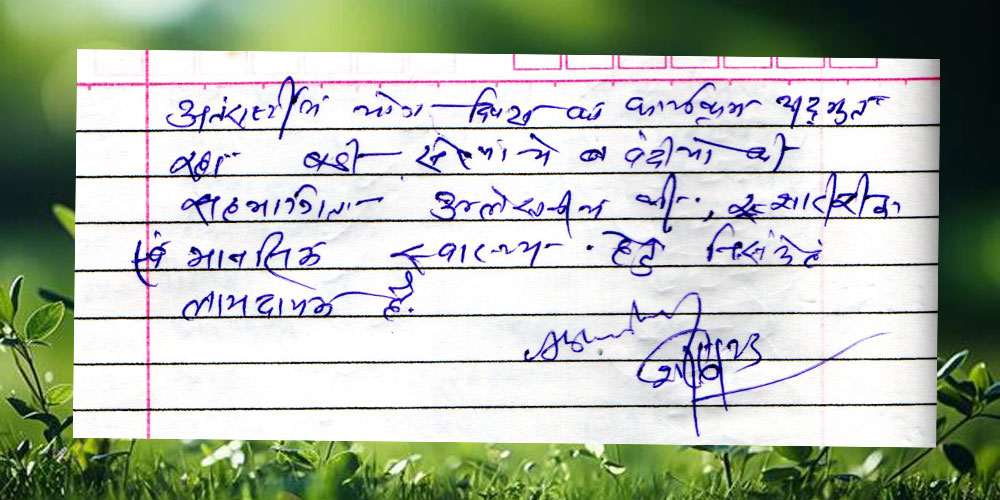 अंतराष्ट्रीय योग दिवस का कार्यक्रम अद्भुत
रहा बडी संख्या में बंदीयो की
सहभागिता उल्लेखनीय थी, शारीरीक
एवं मानसिक स्वास्थ्य हेतु निसंदेह
लाभदायक है.